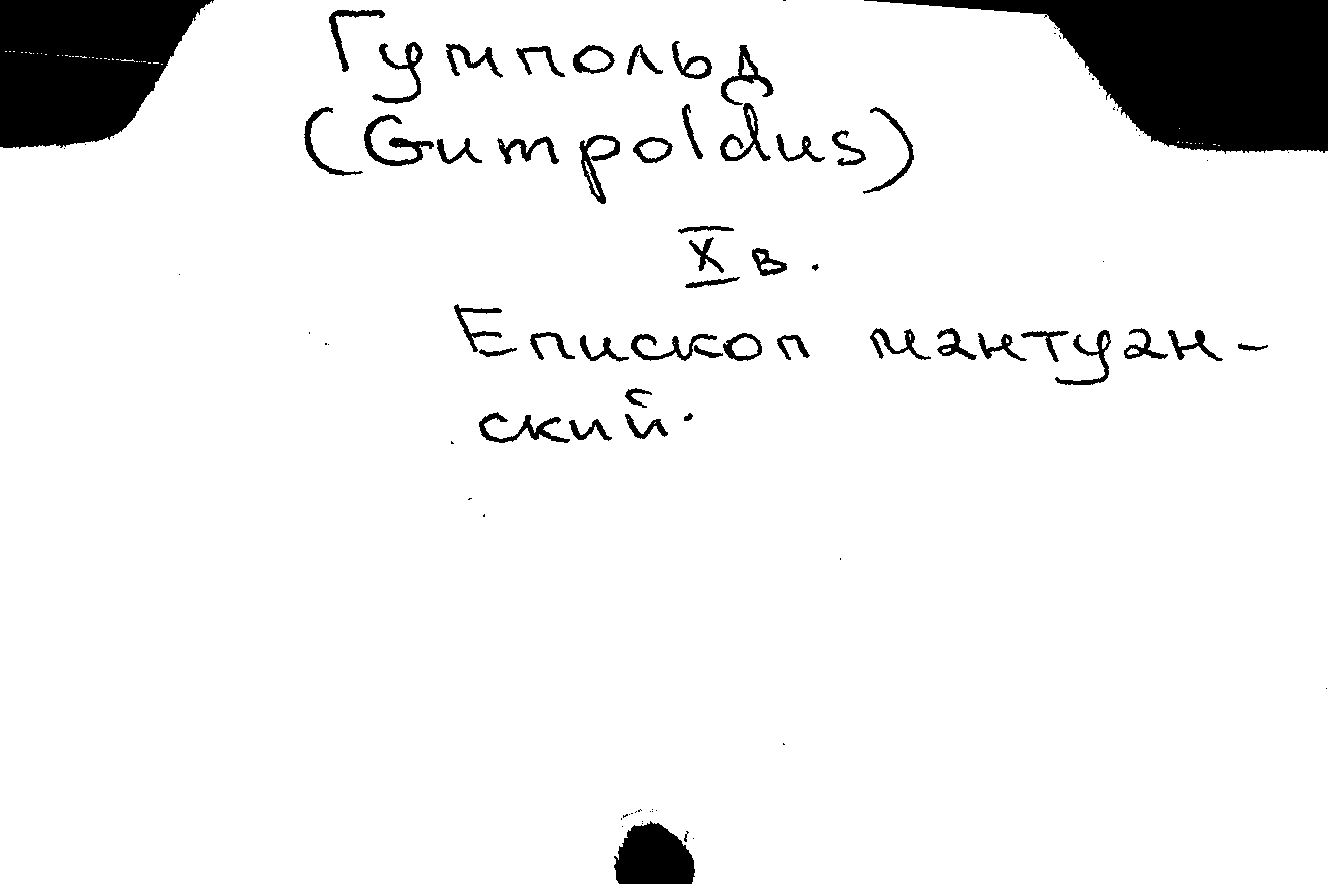 Гумпольд
(Gumpoldus)
X в.
Епископ мантуан-
ский.